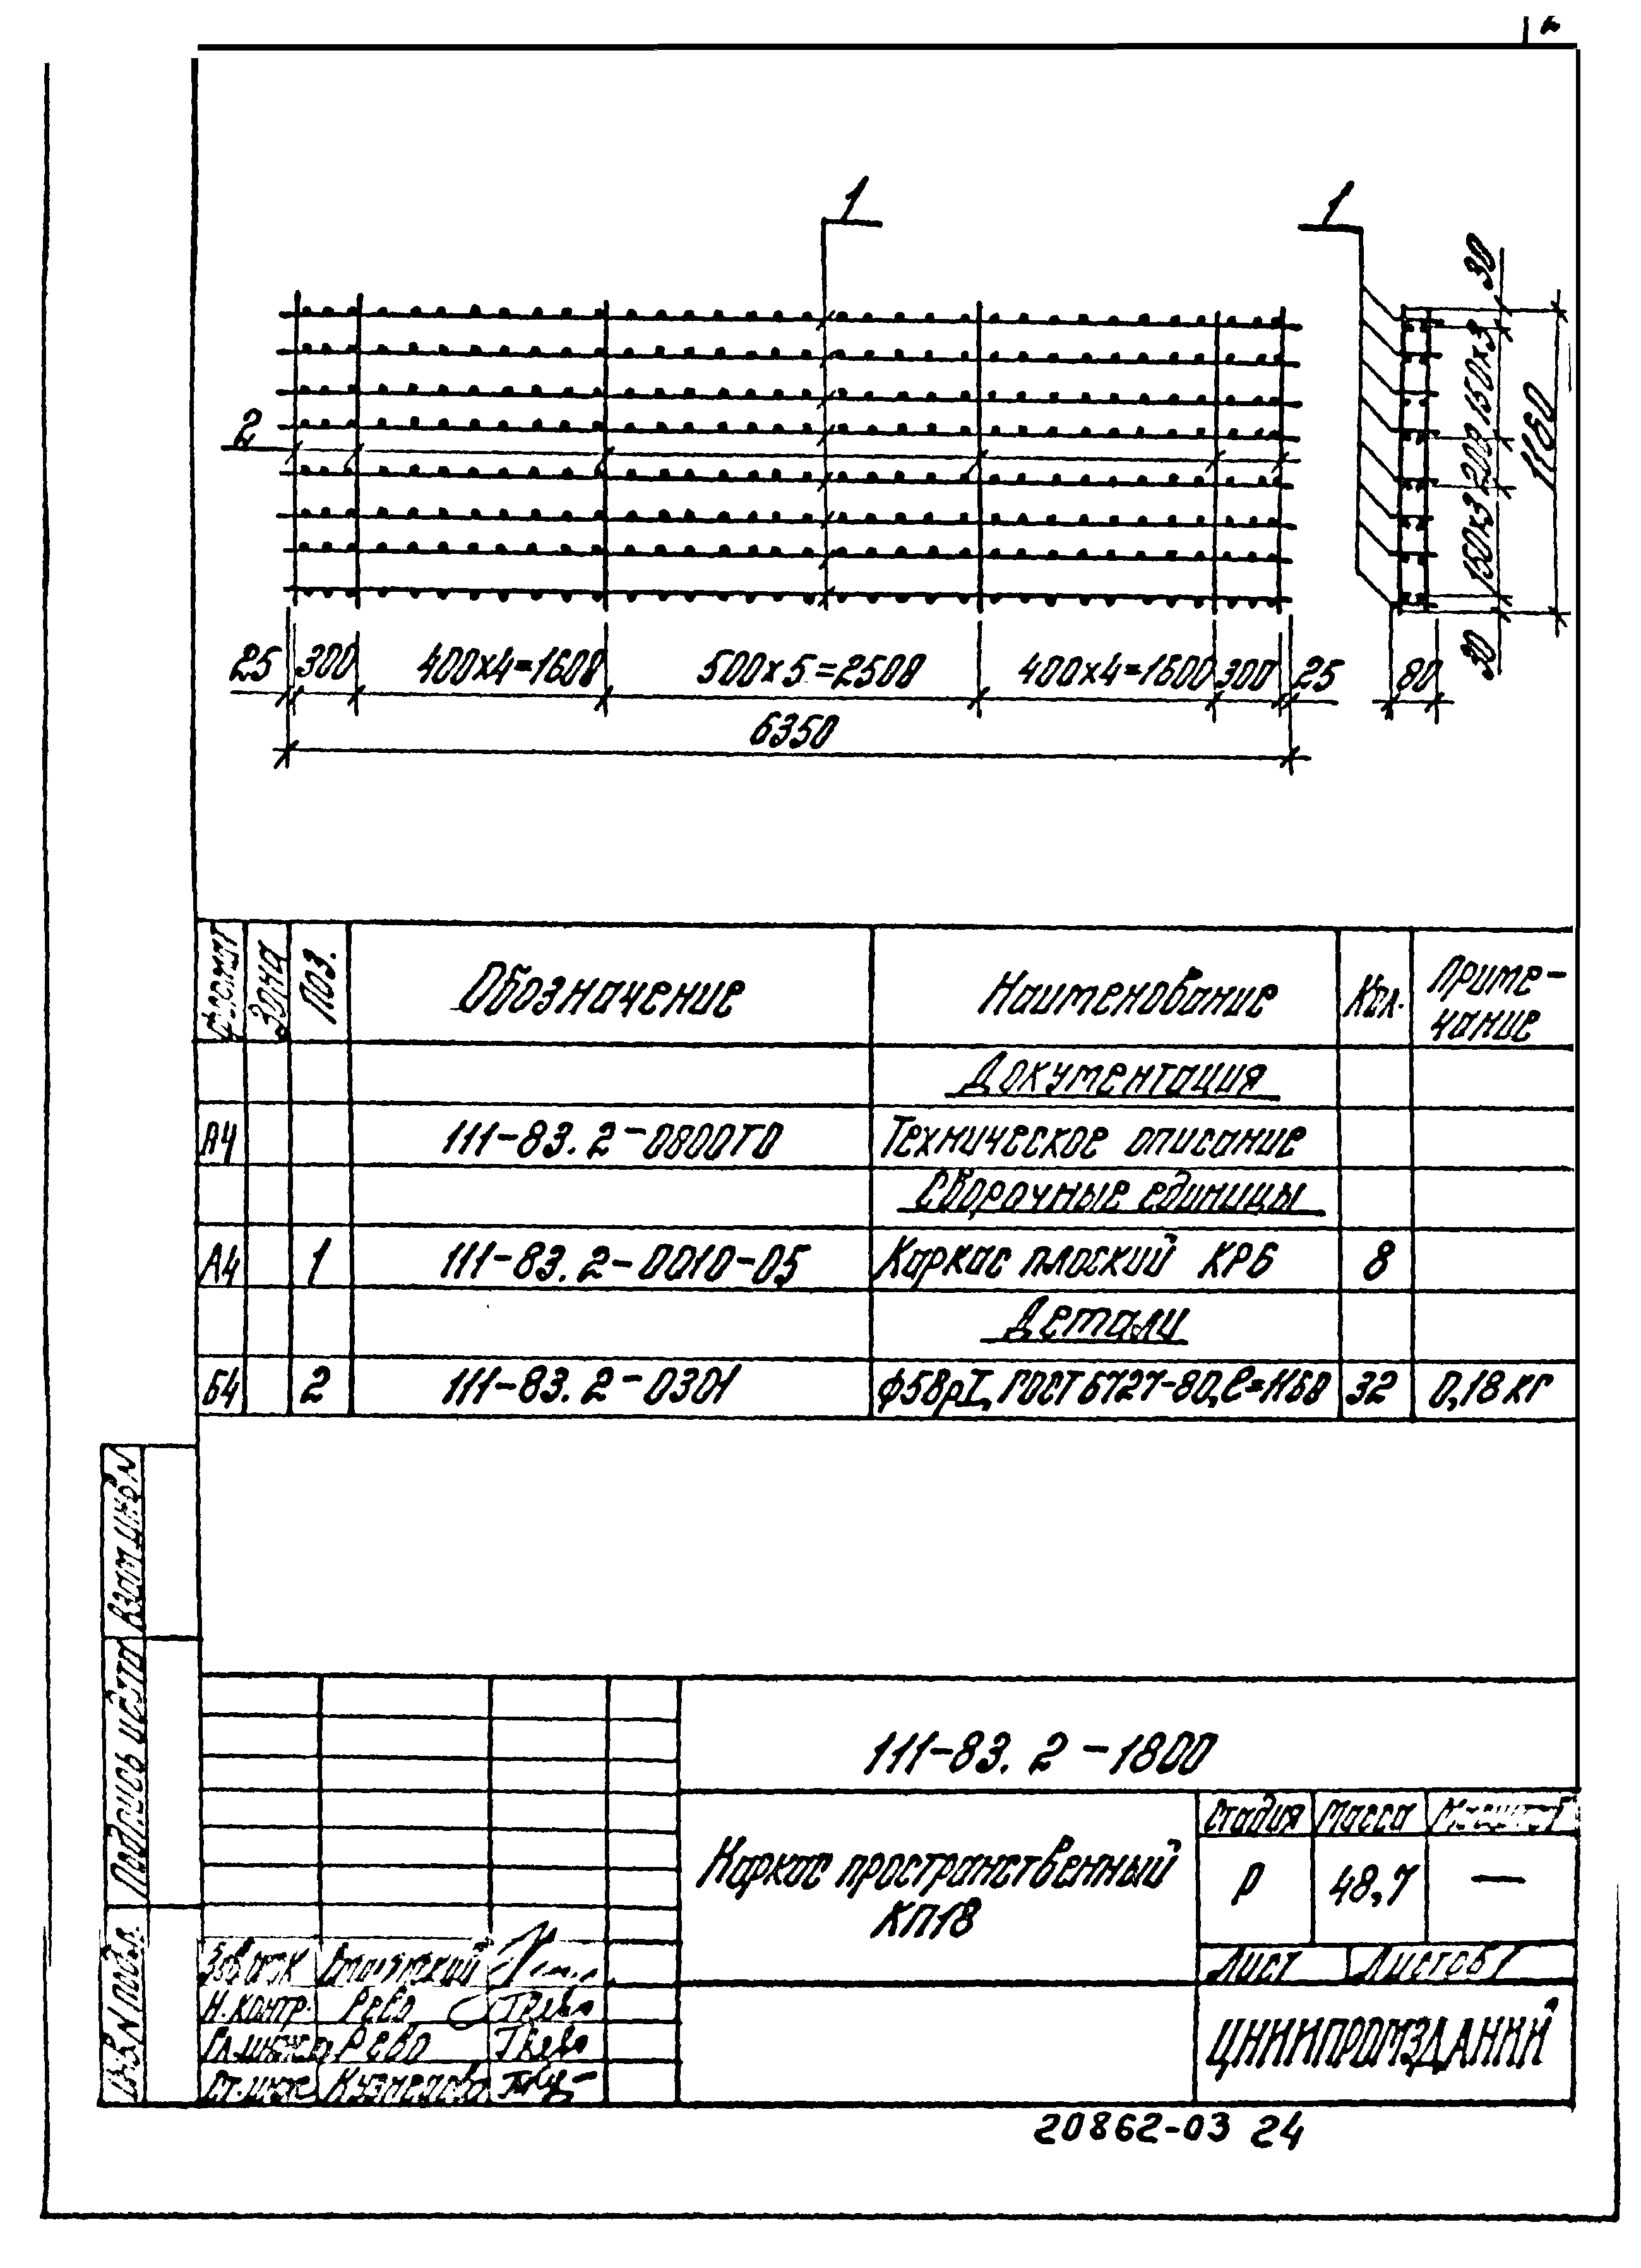 1
1
2
30
150х3
200
150х3
30
1160
25
300
400х4=1600
500х5=2500
400х4=1600
300
25
80
6350
Формат
Зона
Поз.
Обозначение
Наименование
Кол.
Приме-
чание
Документация
А4
111-83.2-0800ТО
Техническое описание
Сборочные единицы
А4
1
111-83.2-0010-05
Каркас плоский КР6
8
Детали
Б4
2
111-83.2-0301
ф5ВрI, ГОСТ 6727-80, ℓ=1160
32
0,18 кг
Взам. инв. N
Подпись и дата
Инв. N подл.
111-83.2-1800
Каркас пространственный
КП18
Стадия
Масса
Масштаб
Р
48,7
—
Лист
Листов 1
ЦНИИПРОМЗДАНИЙ
Н.контр.
Рево
Гл.инж.
Рево
Ст.инж.
20862-03 24